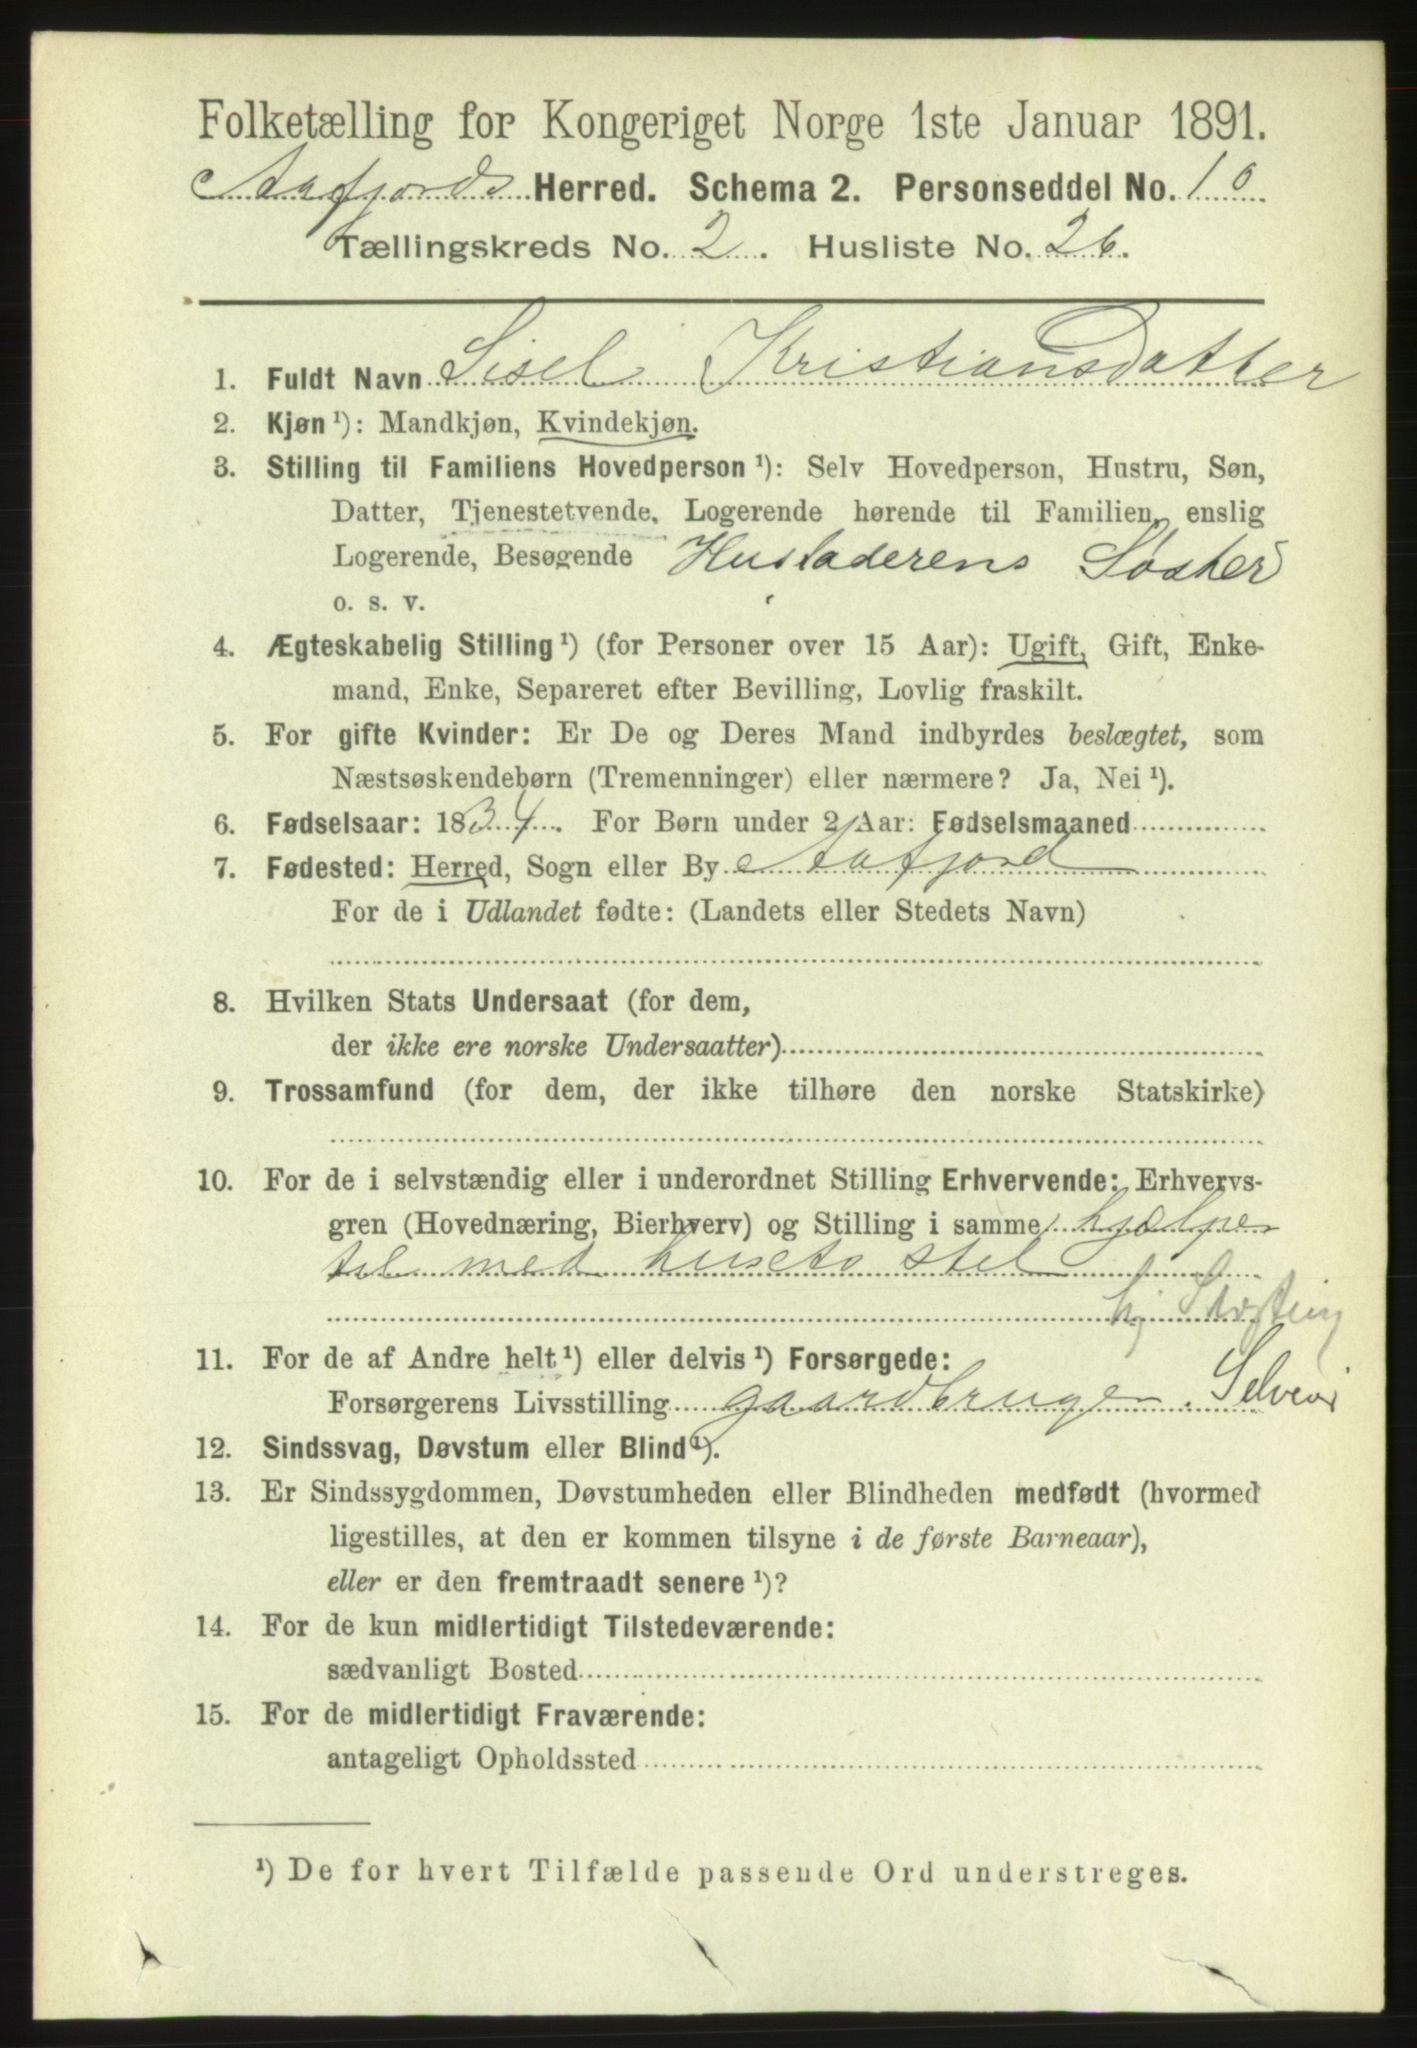 Folketælling for Kongeriget Norge 1ste Januar 1891.
Aafjords Herred. Schema 2. Personseddel No. 10
Tællingskreds No. 2. Husliste No. 26.
1. Fuldt Navn Sisel Kristiansdatter
2. Kjøn ¹): Mandkjøn, Kvindekjøn.
3. Stilling til Familiens Hovedperson ¹): Selv Hovedperson, Hustru, Søn,
Datter, Tjenestetyende, Logerende hørende til Familien, enslig
Logerende, Besøgende Husfaderens Søster
o. s. v.
4. Ægteskabelig Stilling ¹) (for Personer over 15 Aar): Ugift, Gift, Enke-
mand, Enke, Separeret efter Bevilling, Lovlig fraskilt.
5. For gifte Kvinder: Er De og Deres Mand indbyrdes beslægtet, som
Næstsøskendebørn (Tremenninger) eller nærmere? Ja, Nei ¹).
6. Fødselsaar: 1834. For Børn under 2 Aar: Fødselsmaaned
7. Fødested: Herred, Sogn eller By Aafjord
For de i Udlandet fødte: (Landets eller Stedets Navn)
8. Hvilken Stats Undersaat (for dem,
der ikke ere norske Undersaatter)
9. Trossamfund (for dem, der ikke tilhøre den norske Statskirke)
10. For de i selvstændig eller i underordnet Stilling Erhvervende: Erhvervs-
gren (Hovednæring, Bierhverv) og Stilling i samme hjælper
til med husets stel
11. For de af Andre helt ¹) eller delvis ¹) Forsørgede:
Forsørgerens Livsstilling gaardbruger. Selveier
12. Sindssvag, Døvstum eller Blind ¹).
13. Er Sindssygdommen, Døvstumheden eller Blindheden medfødt (hvormed
ligestilles, at den er kommen tilsyne i de første Barneaar),
eller er den fremtraadt senere ¹)?
14. For de kun midlertidigt Tilstedeværende:
sædvanligt Bosted
15. For de midlertidigt Fraværende:
antageligt Opholdssted
¹) De for hvert Tilfælde passende Ord understreges.